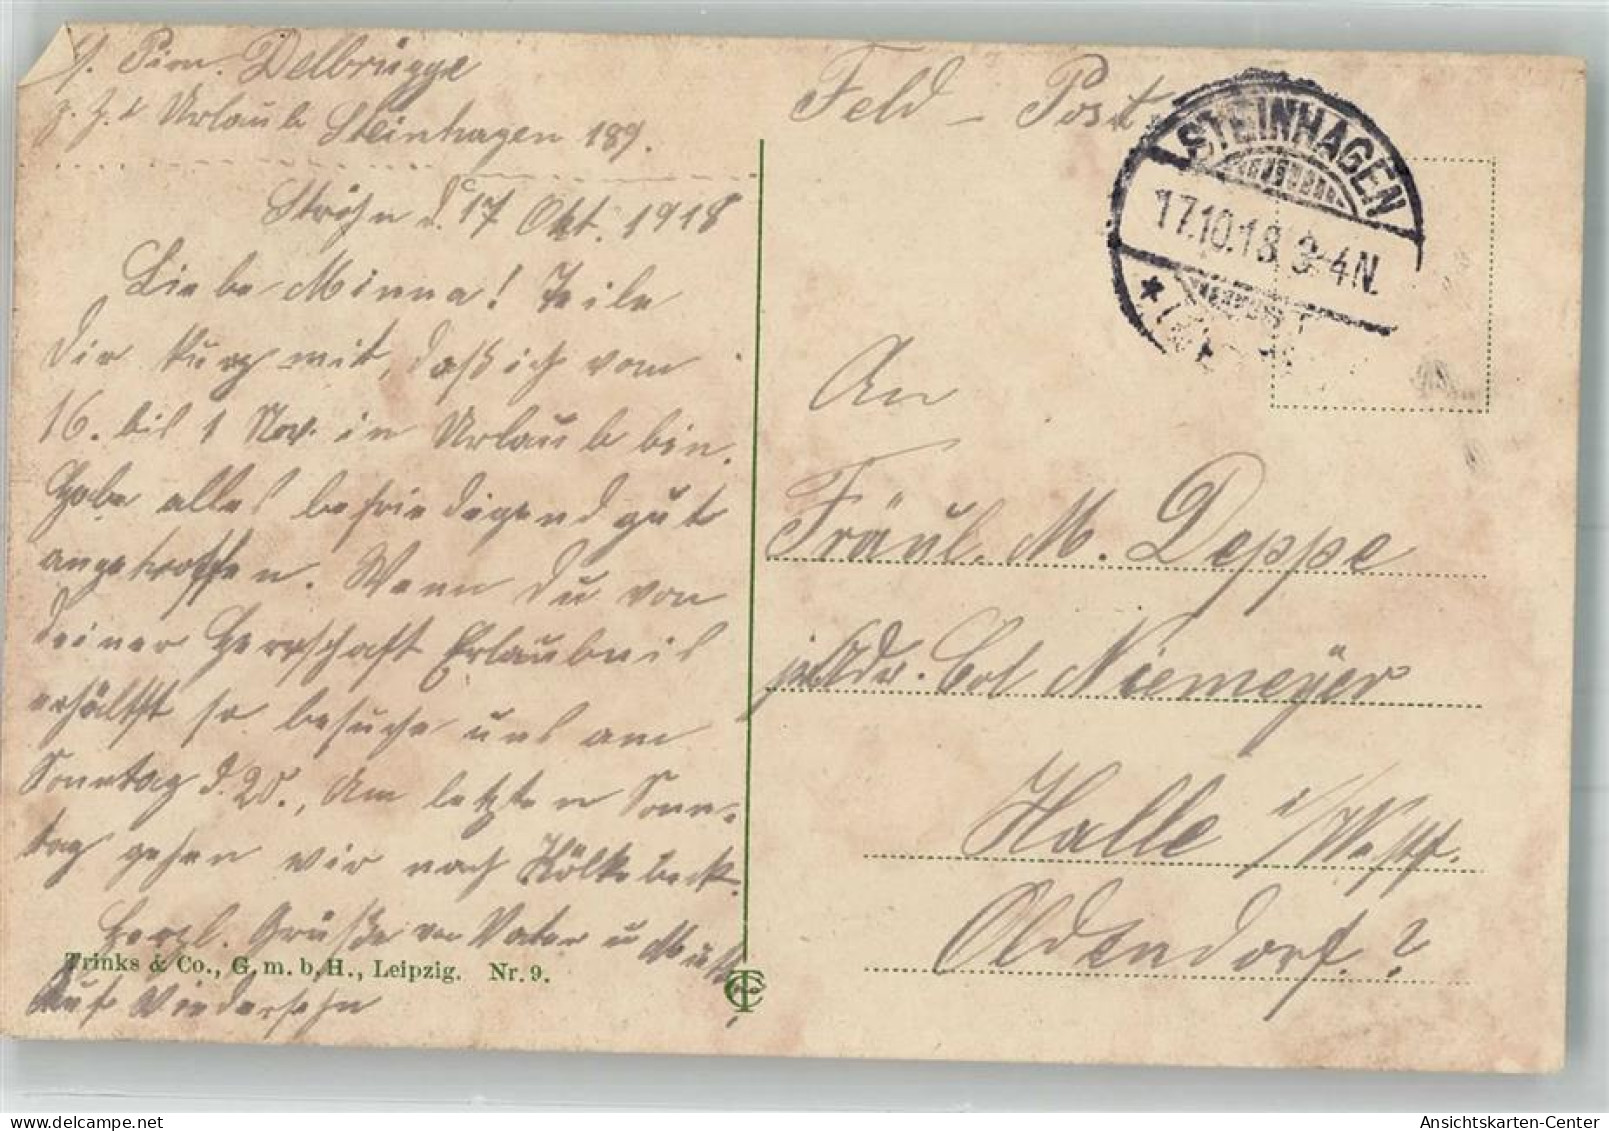 Pion. Delbrügge
z. Z. Urlaub Steinhagen 189.
Ströhn d. 17 Okt. 1918
Liebe Minna! Teile
Dir kurz mit, daß ich vom
16. bis 1 Nov. in Urlaub bin.
Habe alles befriedigend gut
angetroffen. Wenn Du von
deiner Herrschaft Erlaubnis
erhältst so besuche uns am
Sonntag d. 20., Am letzten Sonn-
tag gehen wir nach Kölkebeck.
Herzl. Grüße von Vater u Mutter
Auf Wiedersehn
Trinks & Co., G. m. b. H., Leipzig. Nr. 9.
Feld - Post
STEINHAGEN
17.10.18 3-4N.
An
Fräul. M. Deppe
p. Adr. Col Niemeÿer
Halle i/Westf.
Oldendorf. ?
Ansichtskarten-Center